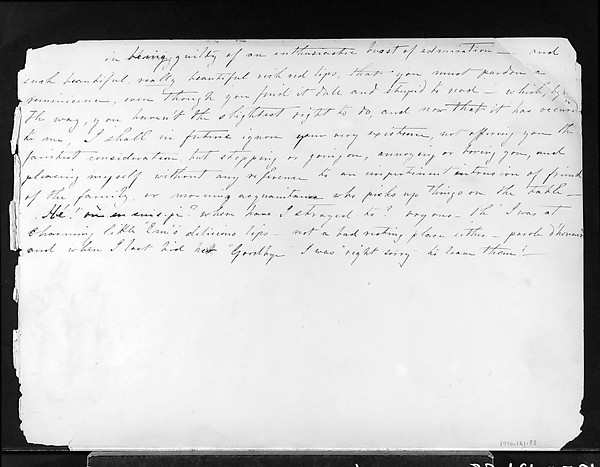 in being guilty of an enthusiastic burst of admiration – and
such beautiful, really beautiful rich red lips, that you must pardon a
reminiscence, even though you find it dull and stupid to read – which, by
the way, you haven't the slightest right to do, and now that it has occurred
to me, I shall in future ignore your very existence, not offering you the
faintest consideration but stopping or going on, annoying or boring you, and
pleasing myself without any reference to an impertinent intrusion of friend
of the family or morning acquaintance who picks up things on the table –
where have I strayed to? – Oh! I was at
charming little Em's delicious lips – not a bad resting place either – parole d'honneur
and when I last bid her "Goodbye" I was "right sorry" to leave them! –
1970.121.88